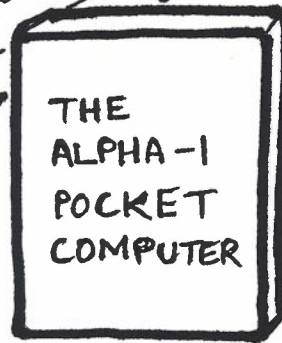 THE
ALPHA-1
POCKET
COMPUTER